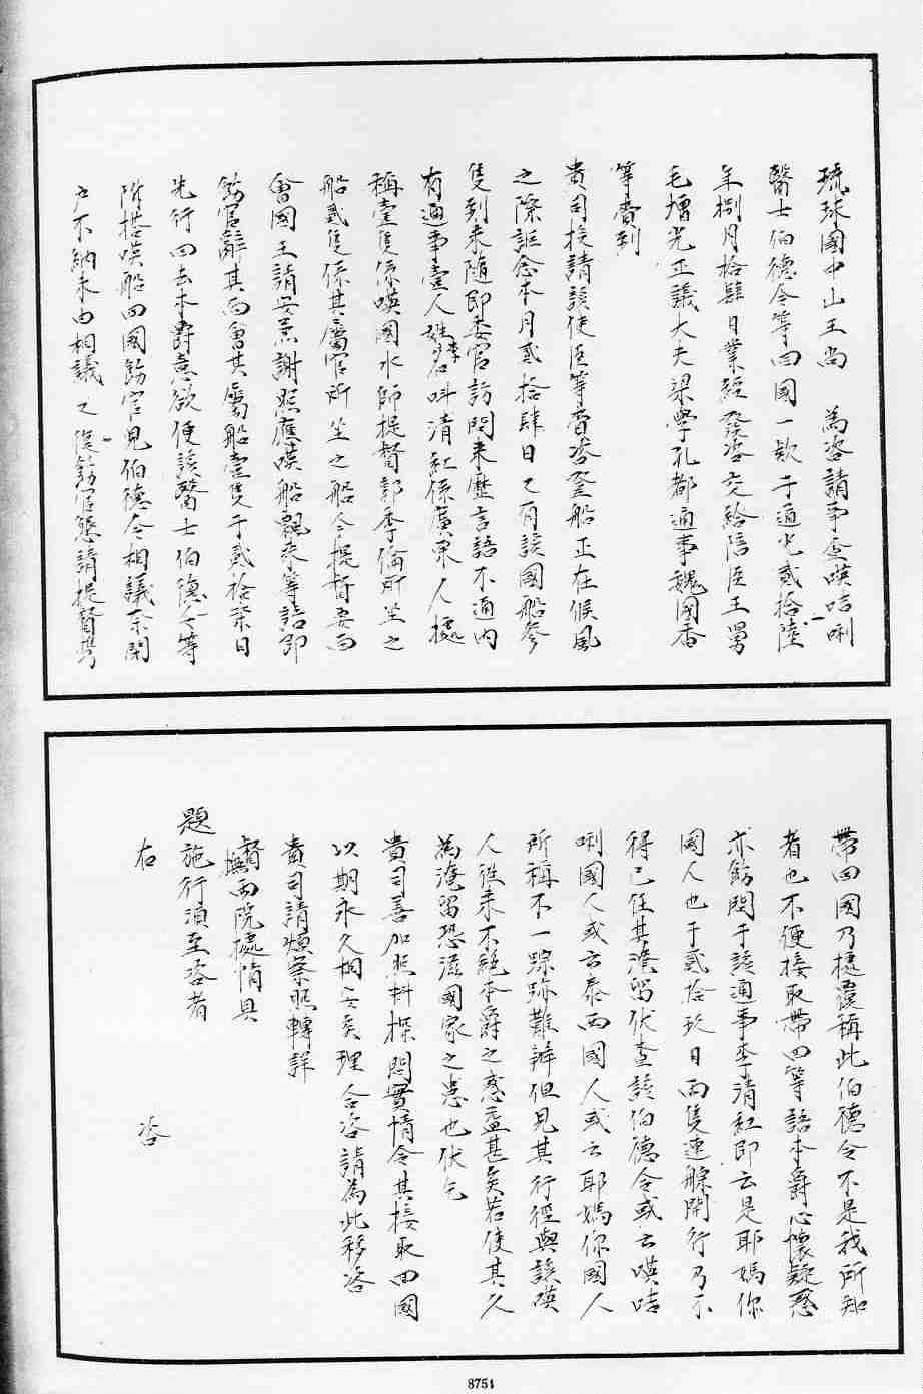 琉球國中山王尚　為咨請事查嘆咭唎
醫士伯德令等回國一欵于道光貳拾陸
年捌月拾肆日業經發咨交給陪臣王舅
毛增光正議大夫梁學孔都通事魏國香
等賫到
貴司投請該使臣等賫咨登船正在候風
之際詎念本月貳拾肆日又有該國船叄
隻到來隨即委官訪問來歷言語不通內
有通事壹人姓李名呌清紅係廣東人據
稱壹隻係嘆國水師提督郭季倫所坐之
船貳隻係其屬官所坐之船今提督要面
會國王請安並謝照應嘆船飄來等語即
飭官辭其面會其屬船壹隻于貳拾柒日
先行回去本爵意欲便該醫士伯德令等
附搭嘆船回國飭官見伯德令相議奈閉
戶不納未由相議又復飭官懇請提督携
帶回國乃據覆稱此伯德令不是我所知
者也不便接取帶回等語本爵心懷疑惑
亦飭問于該通事李清紅即云是耶媽你
國人也于貳拾玖日兩隻連䑸開行乃不
得已任其淹留伏查該伯德令或云嘆咭
唎國人或云泰西國人或云耶媽你國人
所稱不一踪跡難辨但見其行徑與該嘆
人從來不絕本爵之惑益甚矣若使其久
為淹留恐滋國家之患也伏乞
貴司善加照料探問實情令其接取回國
以期永久相安矣理合咨請為此移咨
貴司請煩察照轉詳
督撫兩院據情具
題施行須至咨者
右　咨
8751